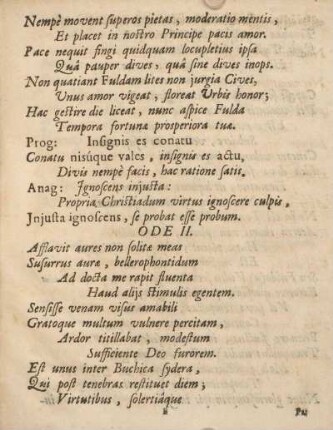 Nempè movent superos pietas, moderatio mentis,
Et placet in nostro Principe pacis amor.
Pace nequit fingi quidquam locupletius ipsa
Quâ pauper dives, quâ sine dives inops.
Non quatiant Fuldam lites non jurgia Cives,
Unus amor vigeat, floreat Urbis honor;
Hac gestire die liceat, nunc aspice Fulda
Tempora fortunæ prosperiora tuæ.
Prog: Insignis es conatu
Conatu nisúque vales, insignis es actu,
Divis nempè facis, hac ratione satis.
Anag: Ignoscens injusta:
Propria Christiadum virtus ignoscere culpis,
Injusta ignoscens, se probat esse probum.
ODE II.
Afflavit aures non solitæ meas
Susurrus auræ, bellerophontidum
Ad docta me rapit fluenta
Haud alijs stimulis egentem.
Sensisse venam visus amabili
Gratoque multum vulnere percitam,
Ardor titillabat, modestum
Sufficiente Deo furorem.
Est unus inter Buchica sydera,
Qui post tenebras restituet diem;
Virtutibus, solertiáque